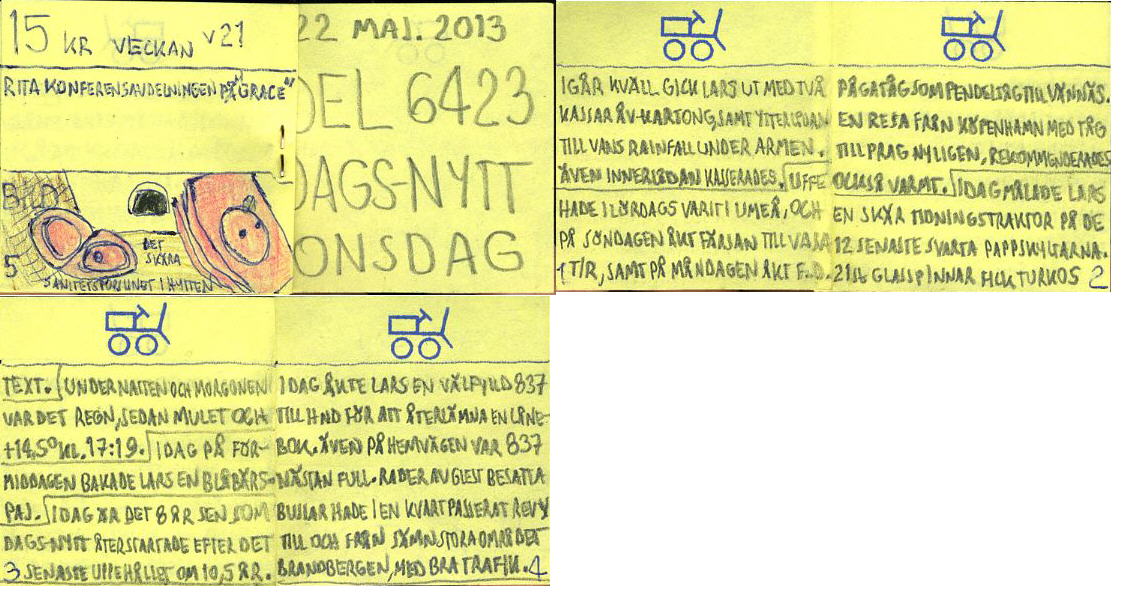 15 KR VECKAN V21
RITA KONFERENSAVDELNINGEN PÅ "GRACE"
BILD
5
DET
SKÄRA
I HYTTEN
22 MAJ. 2013
DEL 6423
DAGS-NYTT
ONSDAG
IGÅR KVÄLL GICK LARS UT MED TVÅ
KASSAR ÅV-KARTONG, SAMT YTTERLÅDAN
TILL VANS RAINFALL UNDER ARMEN.
ÄVEN INNERLÅDAN KASSERADES. UFFE
HADE I LÖRDAGS VARIT I UMEÅ, OCH
PÅ SÖNDAGEN ÅKT FÄRJAN TILL VASA
1 T/R, SAMT PÅ MÅNDAGEN ÅKT F.D.
PÅGATÅG SOM PENDELTÅG TILL VÄNNÄS.
EN RESA FRÅN KÖPENHAMN MED TÅG
TILL PRAG NYLIGEN, REKOMMENDERADES
OCKSÅ VARMT. IDAG MÅLADE LARS
EN SKÄR TIDNINGSTRAKTOR PÅ DE
12 SENASTE SVARTA PAPPSKYLTARNA.
21 ST GLASSPINNAR FICK TURKOS 2
TEXT. UNDER NATTEN OCH MORGONEN
VAR DET REGN, SEDAN MULET OCH
+14,5° KL. 17:19. IDAG PÅ FÖR-
MIDDAGEN BAKADE LARS EN BLÅBÄRS-
PAJ. IDAG ÄR DET 8 ÅR SEN SOM
DAGS-NYTT ÅTERSTARTADE EFTER DET
3 SENASTE UPPEHÅLLET OM 10,5 ÅR.
IDAG ÅKTE LARS EN VÄLFYLLD 837
TILL HND FÖR ATT ÅTERLÄMNA EN LÅNE-
BOK. ÄVEN PÅ HEMVÄGEN VAR 837
NÄSTAN FULL. RADER AV GLEST BESATTA
BUSSAR HADE I EN KVART PASSERAT REVY
TILL OCH FRÅN STORA OMRÅDET
BRANDBERGEN, MED BRA TRAFIK. 4